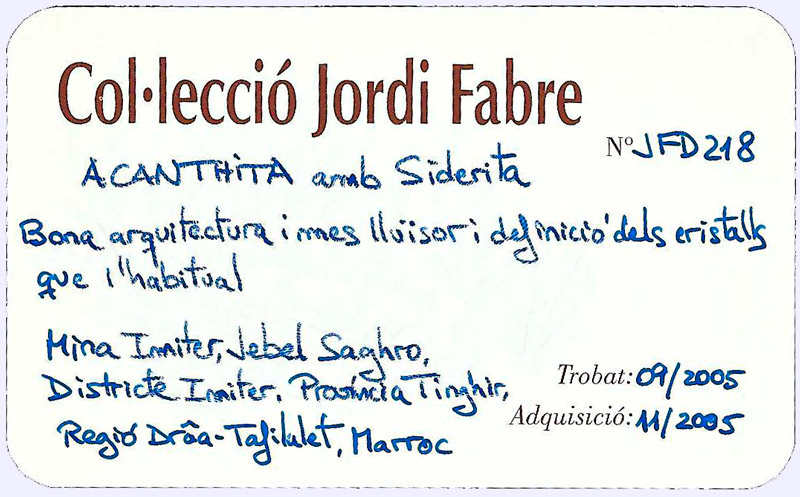 Col·lecció Jordi Fabre
Nº JFD218
ACANTHITA amb Siderita
Bona arquitectura i mes lluïsor i definició dels cristalls
que l'habitual
Mina Imiter, Jebel Saghro,
Districte Imiter, Província Tinghir,
Regió Drâa-Tafilalet, Marroc
Trobat: 09/2005
Adquisició: 11/2005